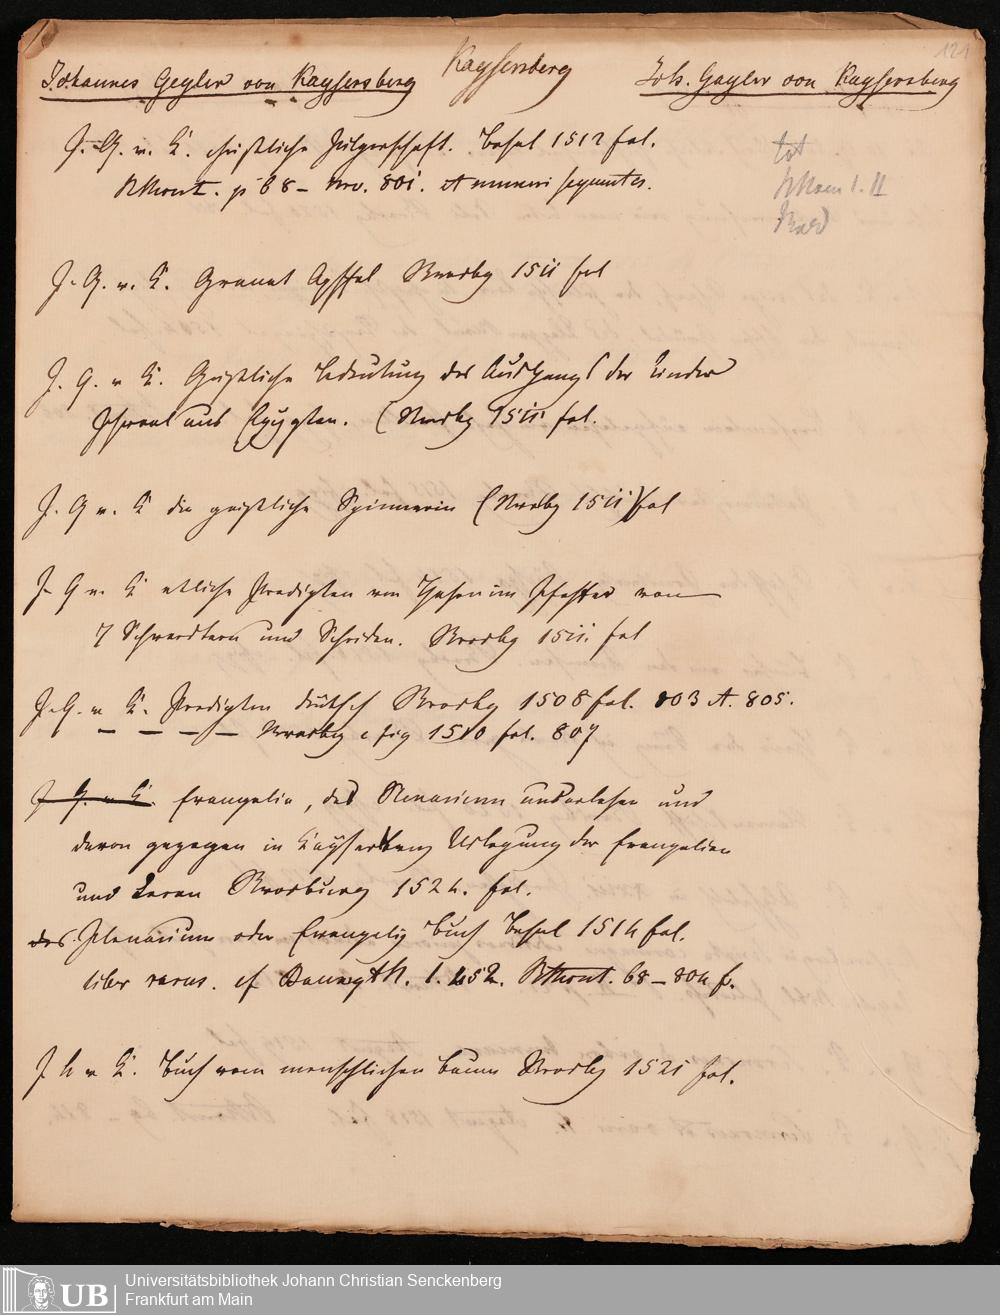 121
Johannes Geyler von Kaysersberg Kaysersberg Joh. Gayler von Kaysersberg
J. G. v. K. christliche Pilgerschaft. Basel 1512 fol.
p 68 – Nro. 801. et numeri sequentes.
tot
I. II
J. G. v. K. Granat Apffel Strasbg 1511 fol
J. G. v K. Geistliche Bedeutung des Ausgangs der Kinder
Israel aus Egypten. (Strasbg 1511 fol.
J. G v. K die geistliche Spinnerin (Strasbg 1511) fol
J. G v. K etliche Predigten von
7 Schwerdtern und Scheiden. Strasbg 1511. fol
J. G. v K. Predigten deutsch Strasbg 1508 fol. 803 et. 805.
– – – – Strasbg c fig 1510 fol. 807
J G. v K. Evangelia, des Plenarium ausserlesen und
davon gezogen in Kaysersberg Uslegung der Evangelien
und Leren Strasburg 1522. fol.
das Plenarium oder Evangely Buch Basel 1514 fol.
liber rarus. cf 1. 68 – 804 f.
J G v K. Buch vom menschlichen baum Strasbg 1521 fol.
Universitätsbibliothek Johann Christian Senckenberg
UB Frankfurt am Main